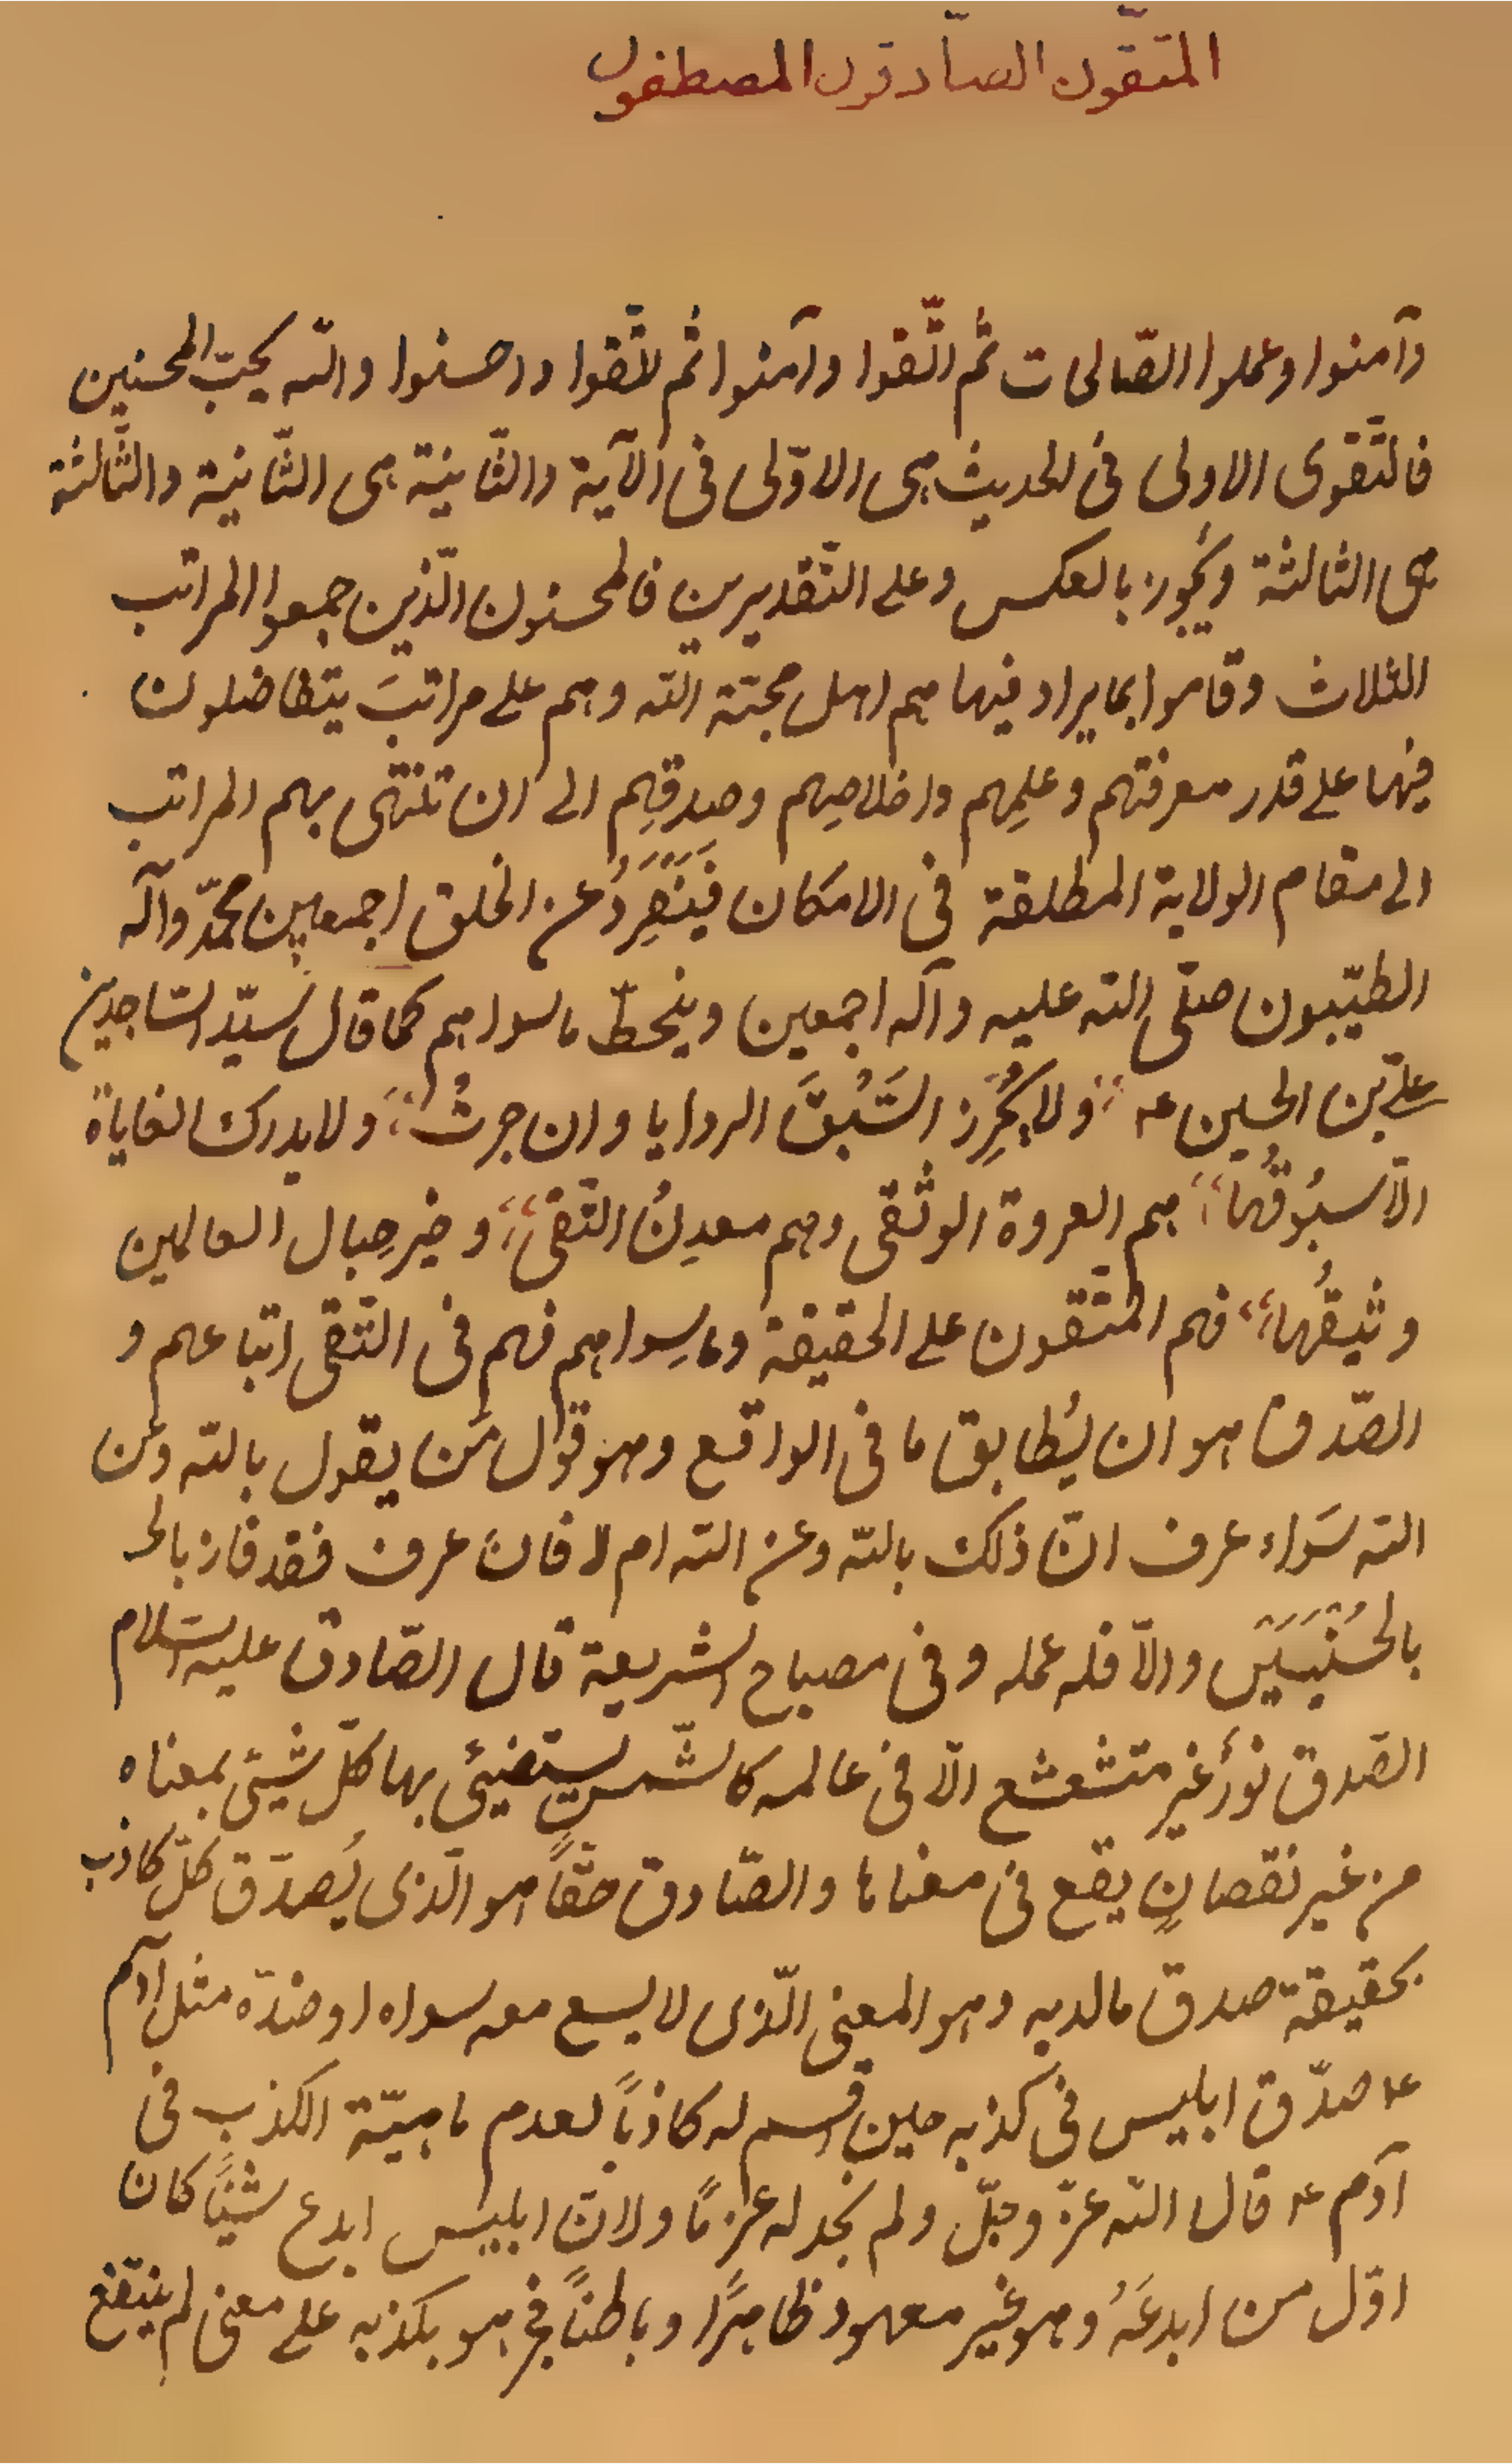 المتّقون الصّادقون المصطفون
وآمنوا وعملوا الصّالحات ثم اتّقوا وآمنوا ثم اتّقوا واحسنوا والله يحبّ المحسنين
فالتّقوى الاولى فى الحديث هى الاوّلى فى الآية والثّانية هى الثّانية والثّالثة
هى الثالثة ويجوز بالعكس وعلى التّقديرين فالمحسنون الّذين جمعوا المراتب
الثلاث وقاموا بما يراد فيها هم اهل محبّة الله وهم على مراتبَ يتفاضلون
فيها على قدر معرفتهم وعلمِهم واخلاصِهم وصدقِهم الى ان تنتهى بهم المراتب
الى مقام الولاية المطلقة فى الامكان فيَنْفَرِدُ عن الخلق اجمعين محمّد وآله
الطيّبون صلّى الله عليه وآله اجمعين وينحطّ ماسواهم كما قال سيّد السّاجدين
علىّ بن الحسين ع؞ ولا يُحْرِز السَّبْقَ الروايا وان جرتْ ؞ ولا يدرك الغاياة
الّا سبُوقُها ؞ هم العروة الوثقى وهم معدِنُ التّقى ؞ وخير حِبال العالمين
وثيقُها ؞ فهم المتّقون على الحقيقة وماسِواهم فهم فى التّقى اتباعهم و
الصّدق هو ان يُطابق ما فى الواقع وهو قول مَن يقول بالله وعن
الله سَواء عرف انّ ذلك بالله وعن الله ام لا فان عرف فقد فاز بالحـ
بالحُسْنَيَيَيْن والّا فله عمله وفى مصباح الشريعة قال الصّادق عليه السّلام
الصّدق نورٌ غير متشعشع الّا فى عالمه كالشّمس يستضيئ بها كلّ شيئ بمعناه
من غير نقصانٍ يقع فى معناها والصّادق حقّاً هو الّذى يُصدّق كلّ كاذب
بحقيقة صدق مالديه وهو المعنى الّذى لا يسع معه سواه او ضدّه مثل آدم
ع صدّق ابليس فى كذبه حين اقسم له كاذباً لعدم ماهيّة الكذب فى
آدم ع قال الله عزّ وجلّ ولم نجد له عزماً ولانّ ابليس ابدع شيئاً كان
اوّل من ابدعَهُ وهو غير معهود ظاهراً وباطناً فخر هو بكذبه على معنى لم ينتفع